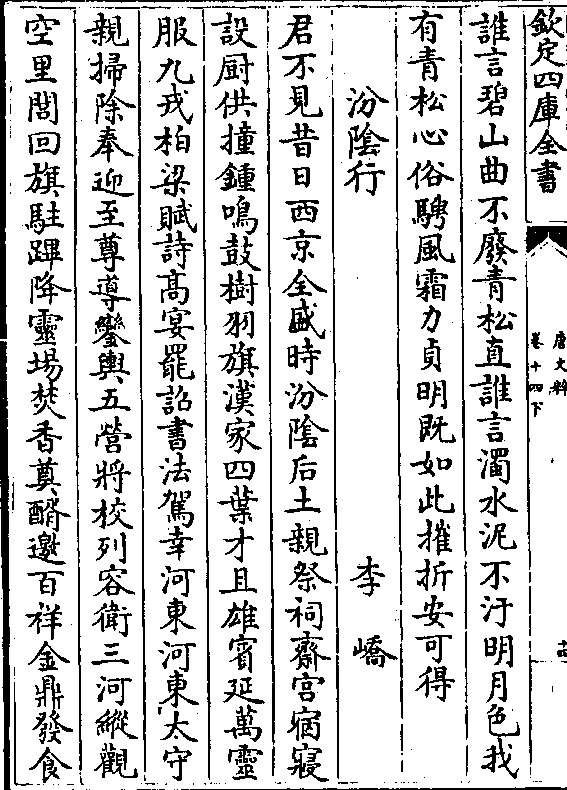 欽定四庫全書
唐文粹
卷十四下
誰言碧山曲不廢青松直誰言濁水泥不汙明月色我
有青松心俗騁風霜力貞明既如此摧折安可得
汾隂行 李嶠
君不見昔日西京全盛時汾隂后土親祭祠齋宮宿寢
設厨供撞鍾鳴鼓樹羽旗漢家四葉才且雄賓延萬靈
服九戎柏梁賦詩高宴罷詔書法駕幸河東河東太守
親掃除奉迎至尊導鑾輿五營將校列容衛三河縱觀
空里閭回旗駐蹕降靈場焚香奠醑邀百祥金鼎發食